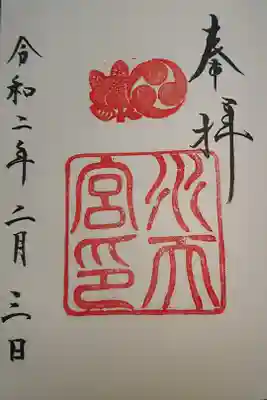 奉拝
水天
宮印
令和二年二月三日